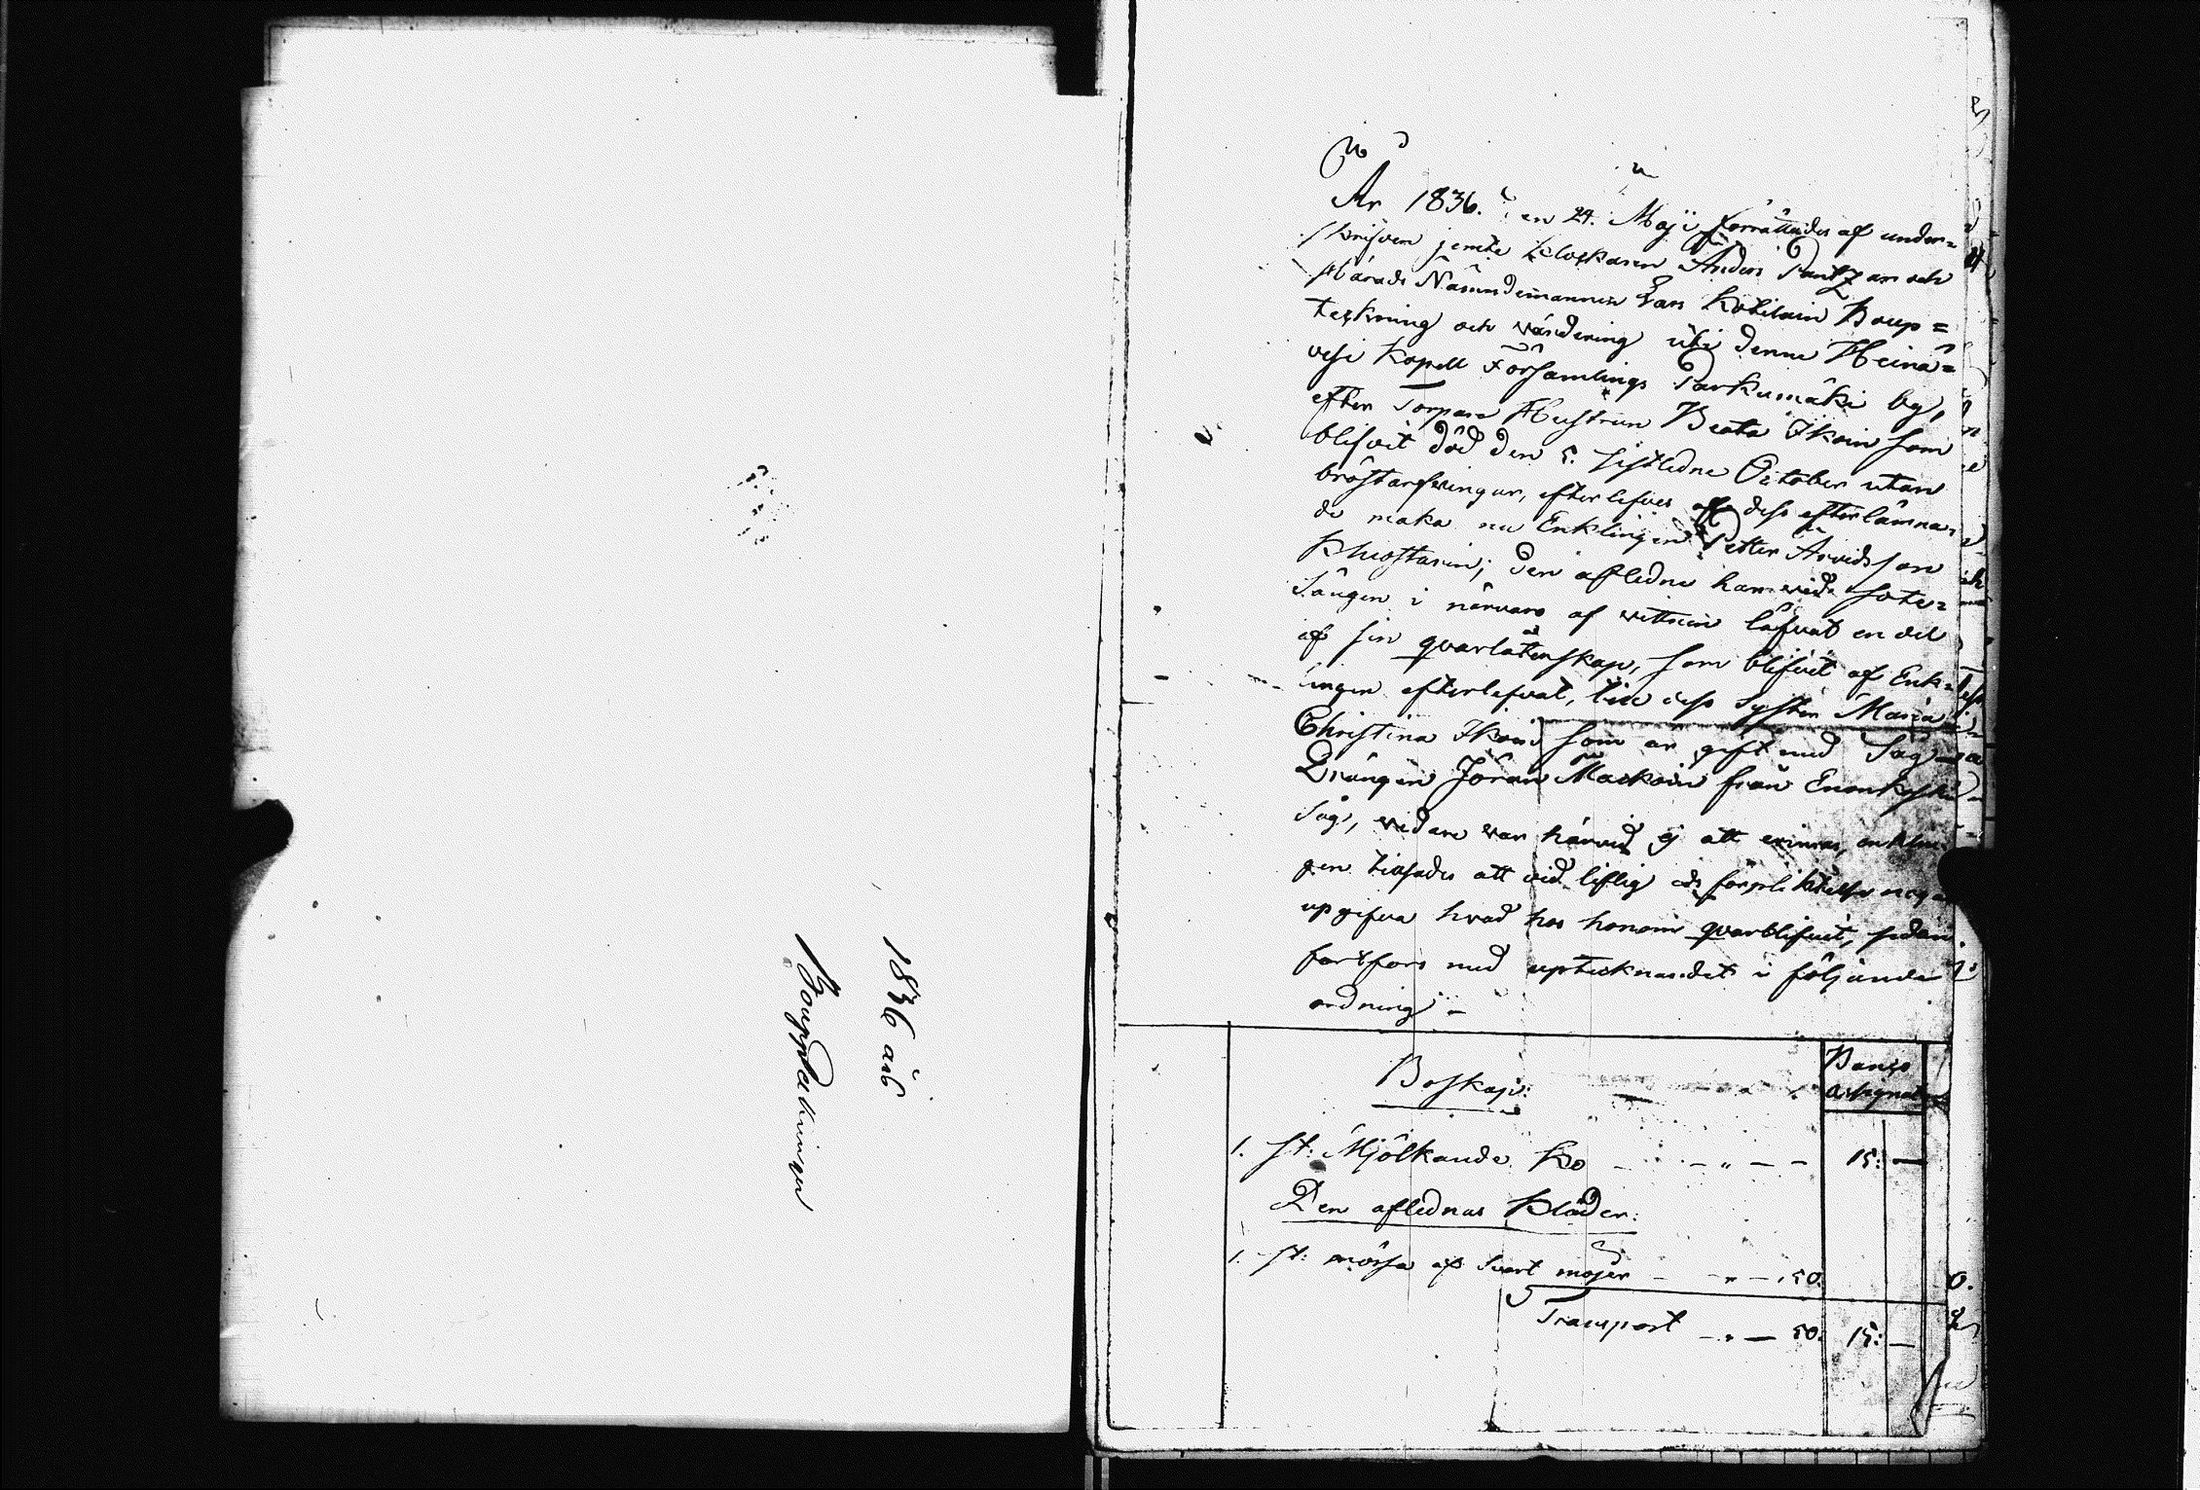 1836 års
Bouppteckningar
År 1836. den 24. Maji förrättades af under=
skrifven jemte Klockaren Anders Pantzar och
Härads Nämndemannen Lars Kobilain Boup=
teckning och värdering uti denne Heinä=
vesi Kapell Församlings Parkumäki by,
efter Torpare Hustrun Beata Ikoin som
blifvit död den 5. sistledne October utan
bröstarfvingar, efterlefves af dess efterlämna=
de maka nu Enklingen Petter Arvidsson
den afledne har vid sote=
sängen i närvaro af vittnen låfvat en del
af sin qvarlåtenskap, som blifvit af Enk=
lingen efterlefvat, till dess syster Maria
Christina Ikoin som är gift med Såg
Drängen Jöran Mackoin från Enonkoski
Såg, vidare var härvid ej att erinras, enklin
gen tilsades att vid liflig eds förpliktelse noga
upgifva hvad hos honom qvarblifvit, sedan
fortfors med upteknandet i följande
ordning -
Boskap: Banco Assignat
1. st: Mjölkande Ko - - - - - 15: -
Den aflednas Kläder:
1. st: mössa af svart - - - 50.
Transport - - 50. 15: -